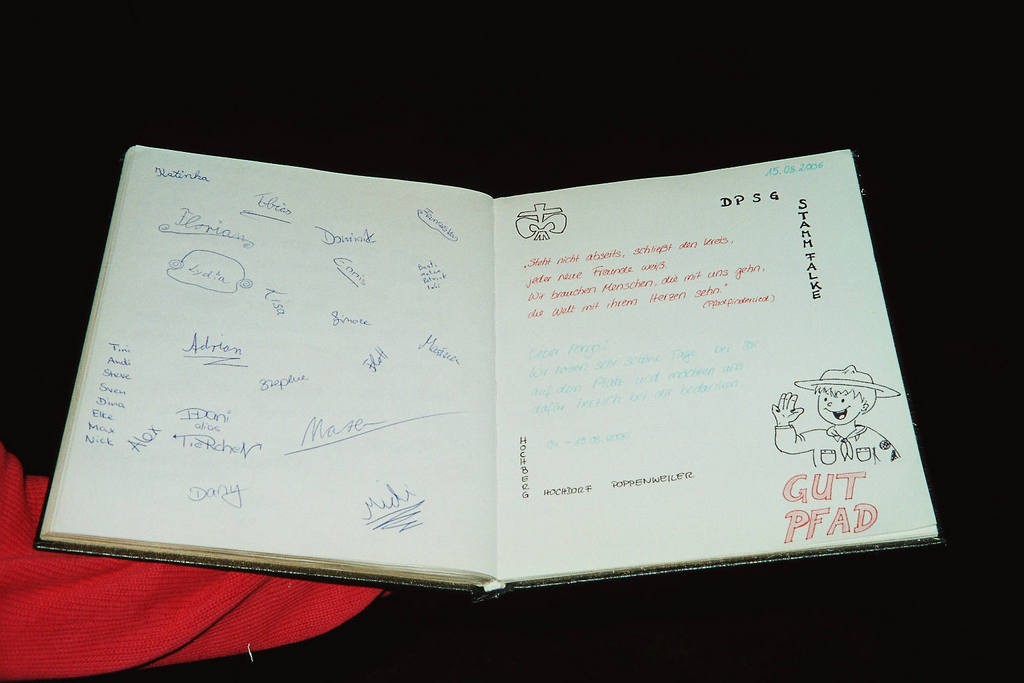 Katinka
Tobias
Florian
Dominik
Lydia
Lisa
Simone
Adrian
Tini
Andi
Steve
Sven
Dina
Elke
Max
Nick
Alex
Dani
alias
TierCheN
Dany
Midi
15.08.2006
DPSG
STAMM FALKE
„Steht nicht abseits, schließt den Kreis,
jeder neue Freunde weiß.
Wir brauchen Menschen, die mit uns gehn,
die Welt mit ihrem Herzen sehn."
(Pfadfinderlied)
Wir hatten sehr schöne Tage bei Dir
auf dem Platz und möchten uns
dafür herzlich bei dir bedanken.
HOCHBERG
HOCHDORF POPPENWEILER
GUT
PFAD